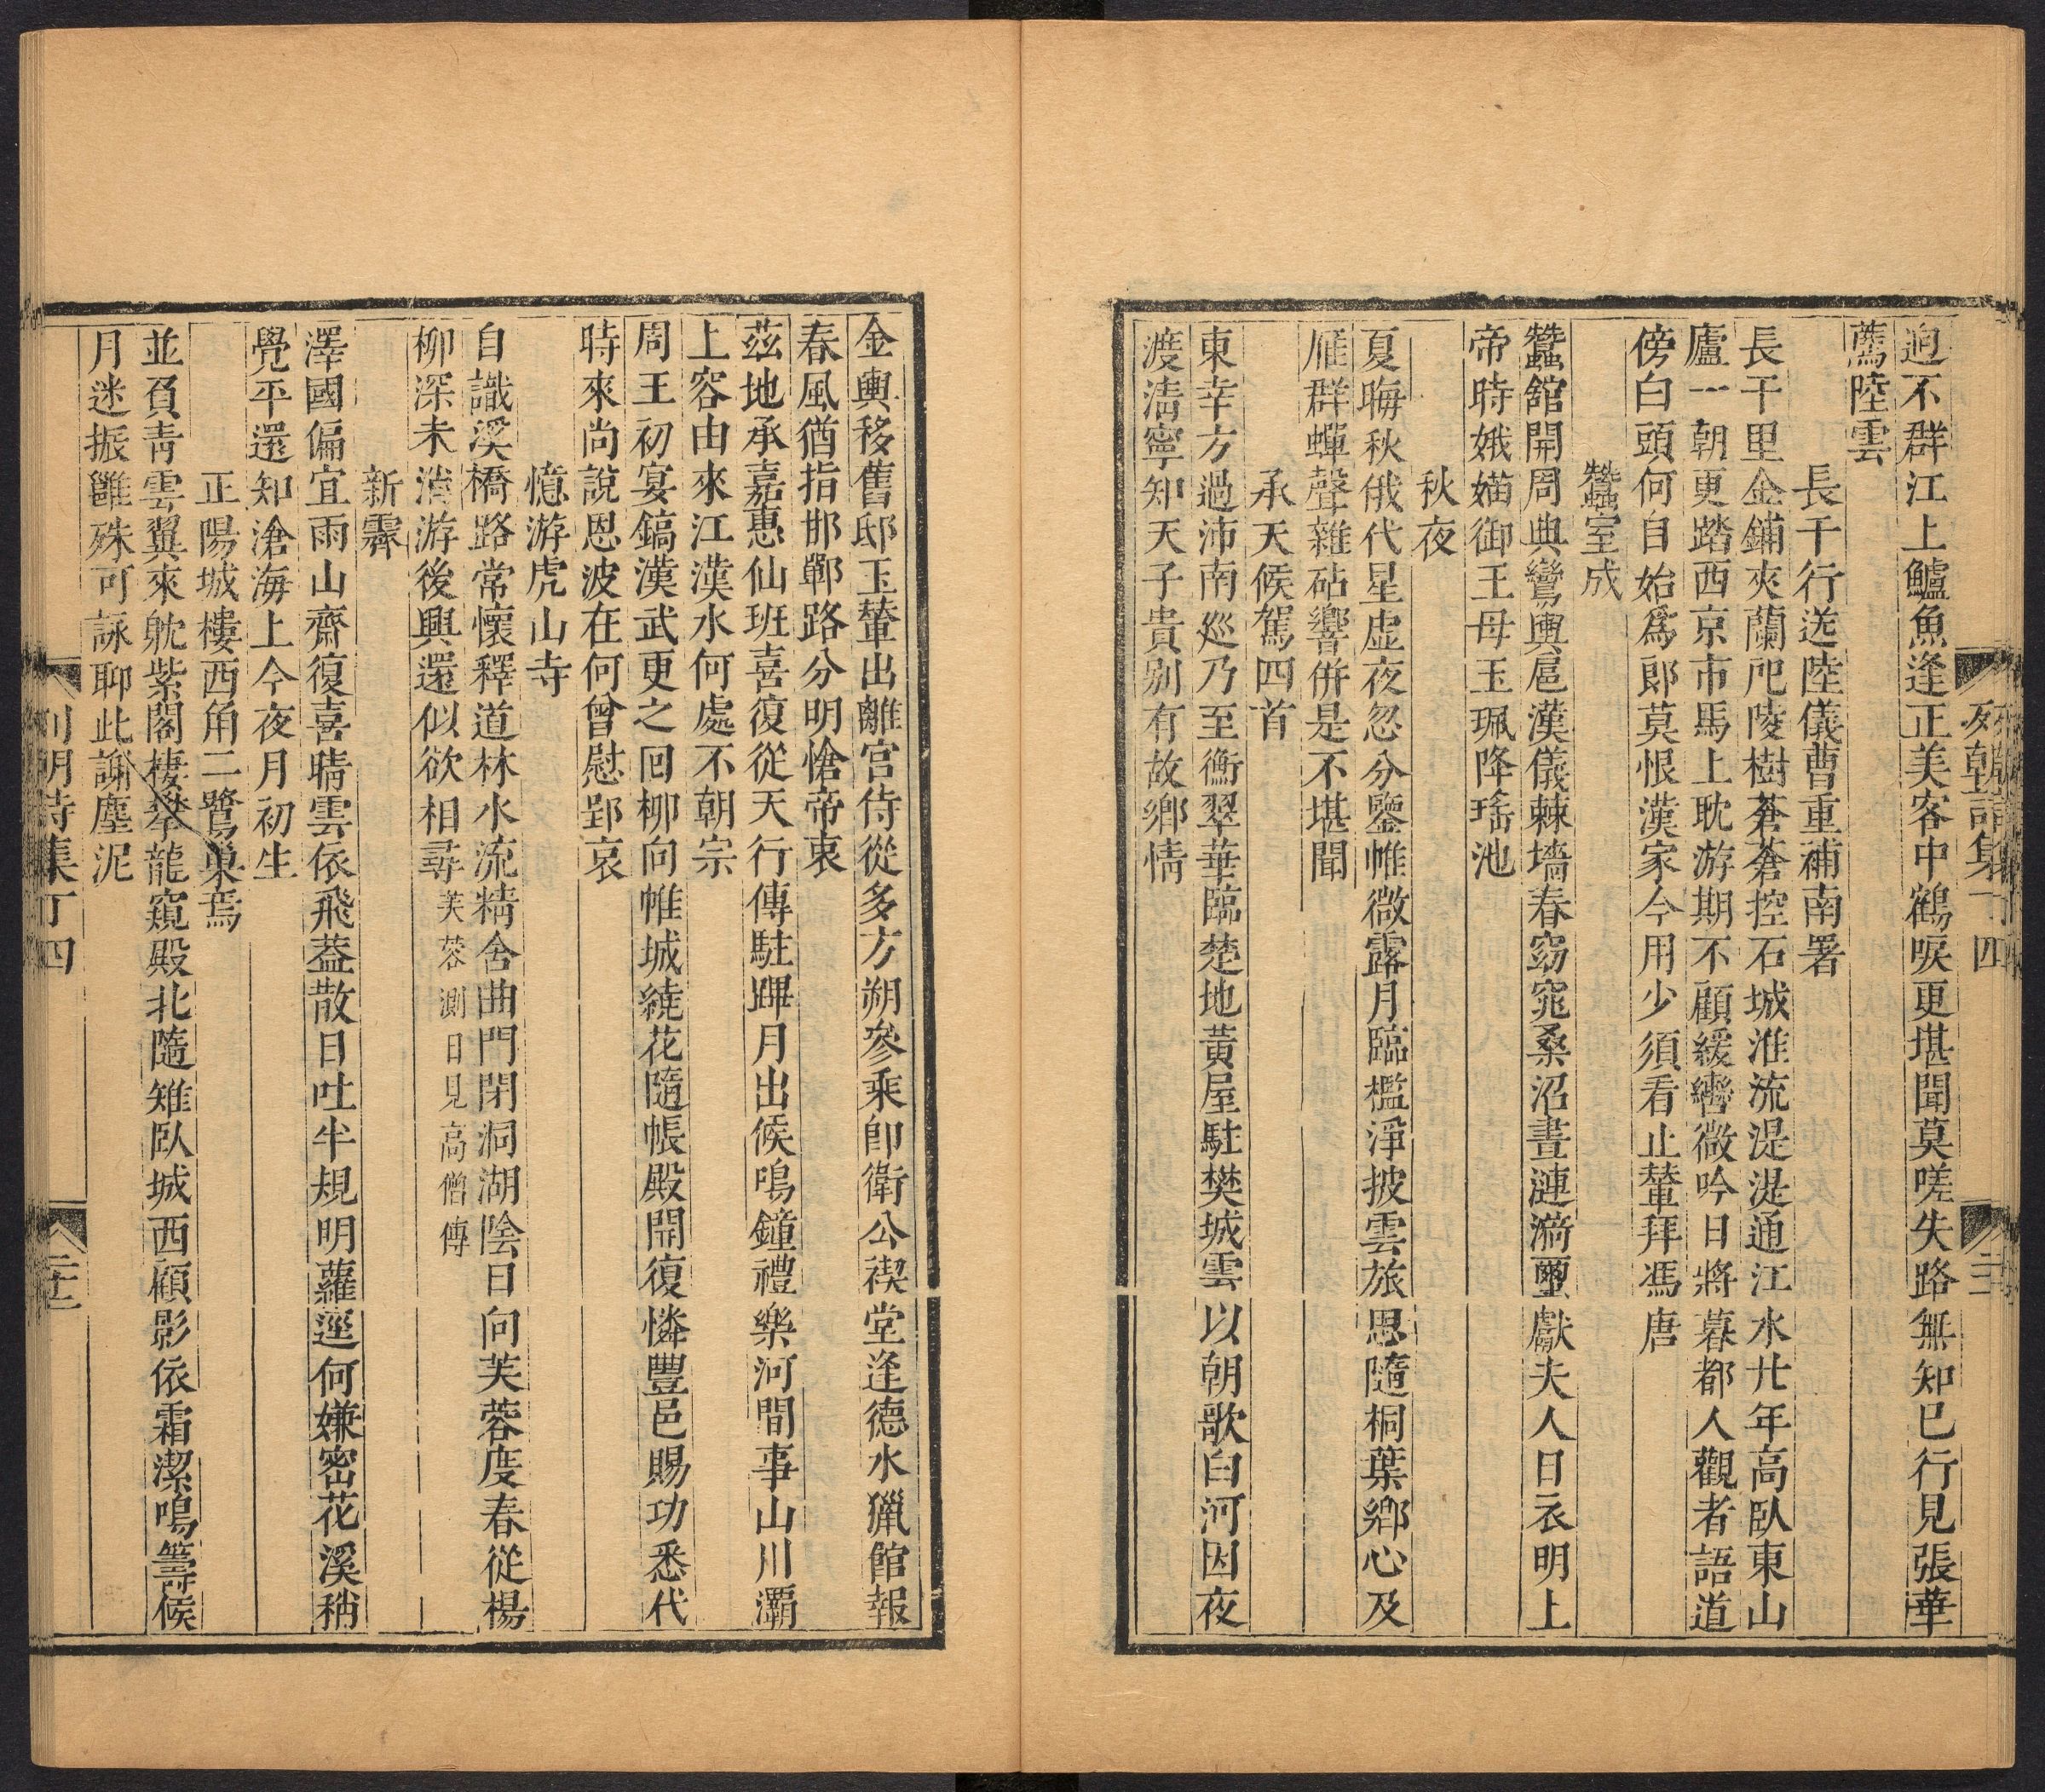 列朝詩集丁四
迥不群江上鱸魚逢正美客中鶴唳更堪聞莫嗟失路無知已行見張華
薦陸雲
長干行送陸儀曹重補南署
長干里金鋪夾蘭戺陵樹蒼蒼控石城淮流湜湜通江水廿年高臥東山
廬一朝更踏西京市馬上耽游期不顧緩轡微吟日將暮都人觀者語道
傍白頭何自始爲郞莫恨漢家今用少須看止輦拜馮唐
蠶室成
蠶舘開周典鸞輿扈漢儀棘墻春窈窕桑沼晝漣漪繭獻夫人日衣明上
帝時娥嫱御王母玉珮降瑤池
秋夜
夏晦秋俄代星虛夜忽分鑒帷微露月臨檻淨披雲旅思隨桐葉鄉心及
雁群蟬聲雜砧響併是不堪聞
承天候駕四首
東幸方過沛南廵乃至衡翠華臨楚地黃屋駐樊城雲以朝歌白河因夜
渡淸寧知天子貴别有故鄉情
金輿移舊邸玉輦出離宮侍從多方朔參乘卽衛公禊堂逢德水獵館報
春風猶指邯鄲路分明愴帝衷
茲地承嘉惠仙班喜復從天行傳駐蹕月出候鳴鐘禮樂河間事山川灞
上容由來江漢水何處不朝宗
周王初宴鎬漢武更之回柳向帷城繞花隨帳殿開復憐豐邑賜功悉代
時來尚說恩波在何曾慰郢哀
憶游虎山寺
自識溪橋路常懷釋道林水流精舍曲門閉洞湖陰日向芙蓉度春從楊
柳深未消游後興還似欲相尋芙蓉測日見高僧傳
新霽
澤國偏宜雨山齋復喜晴雲依飛葢散日吐半規明蘿逕何嫌密花溪稍
覺平還知滄海上今夜月初生
正陽城樓西角二鷺巢焉
並負靑雲翼來躭紫閣棲攀龍窺殿北隨雉臥城西顧影依霜潔鳴籌候
月迷振雝殊可詠聊此謝塵泥
列朝詩集丁四